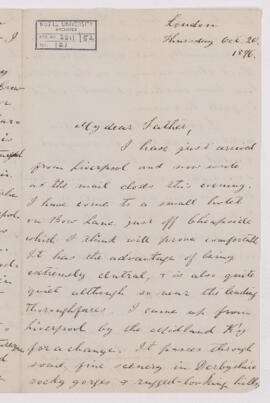 London
Thursday Oct. 20.
1896.
McGILL UNIVERSITY
ARCHIVES
ACC. NO.
REF.
My dear Father,
I have just arrived
from Liverpool and now write
as the mail closes this evening.
I have come to a small hotel
on Bow Lane, just off Cheapside
which I think will prove comfortable.
It has the advantage of being
extremely central, & is also quite
quiet although so near the leading
thoroughfares. I came up from
Liverpool by the Midland Ry
for a change. It passes through
some fine scenery in Derbyshire
rocky gorges & rugged-looking hills